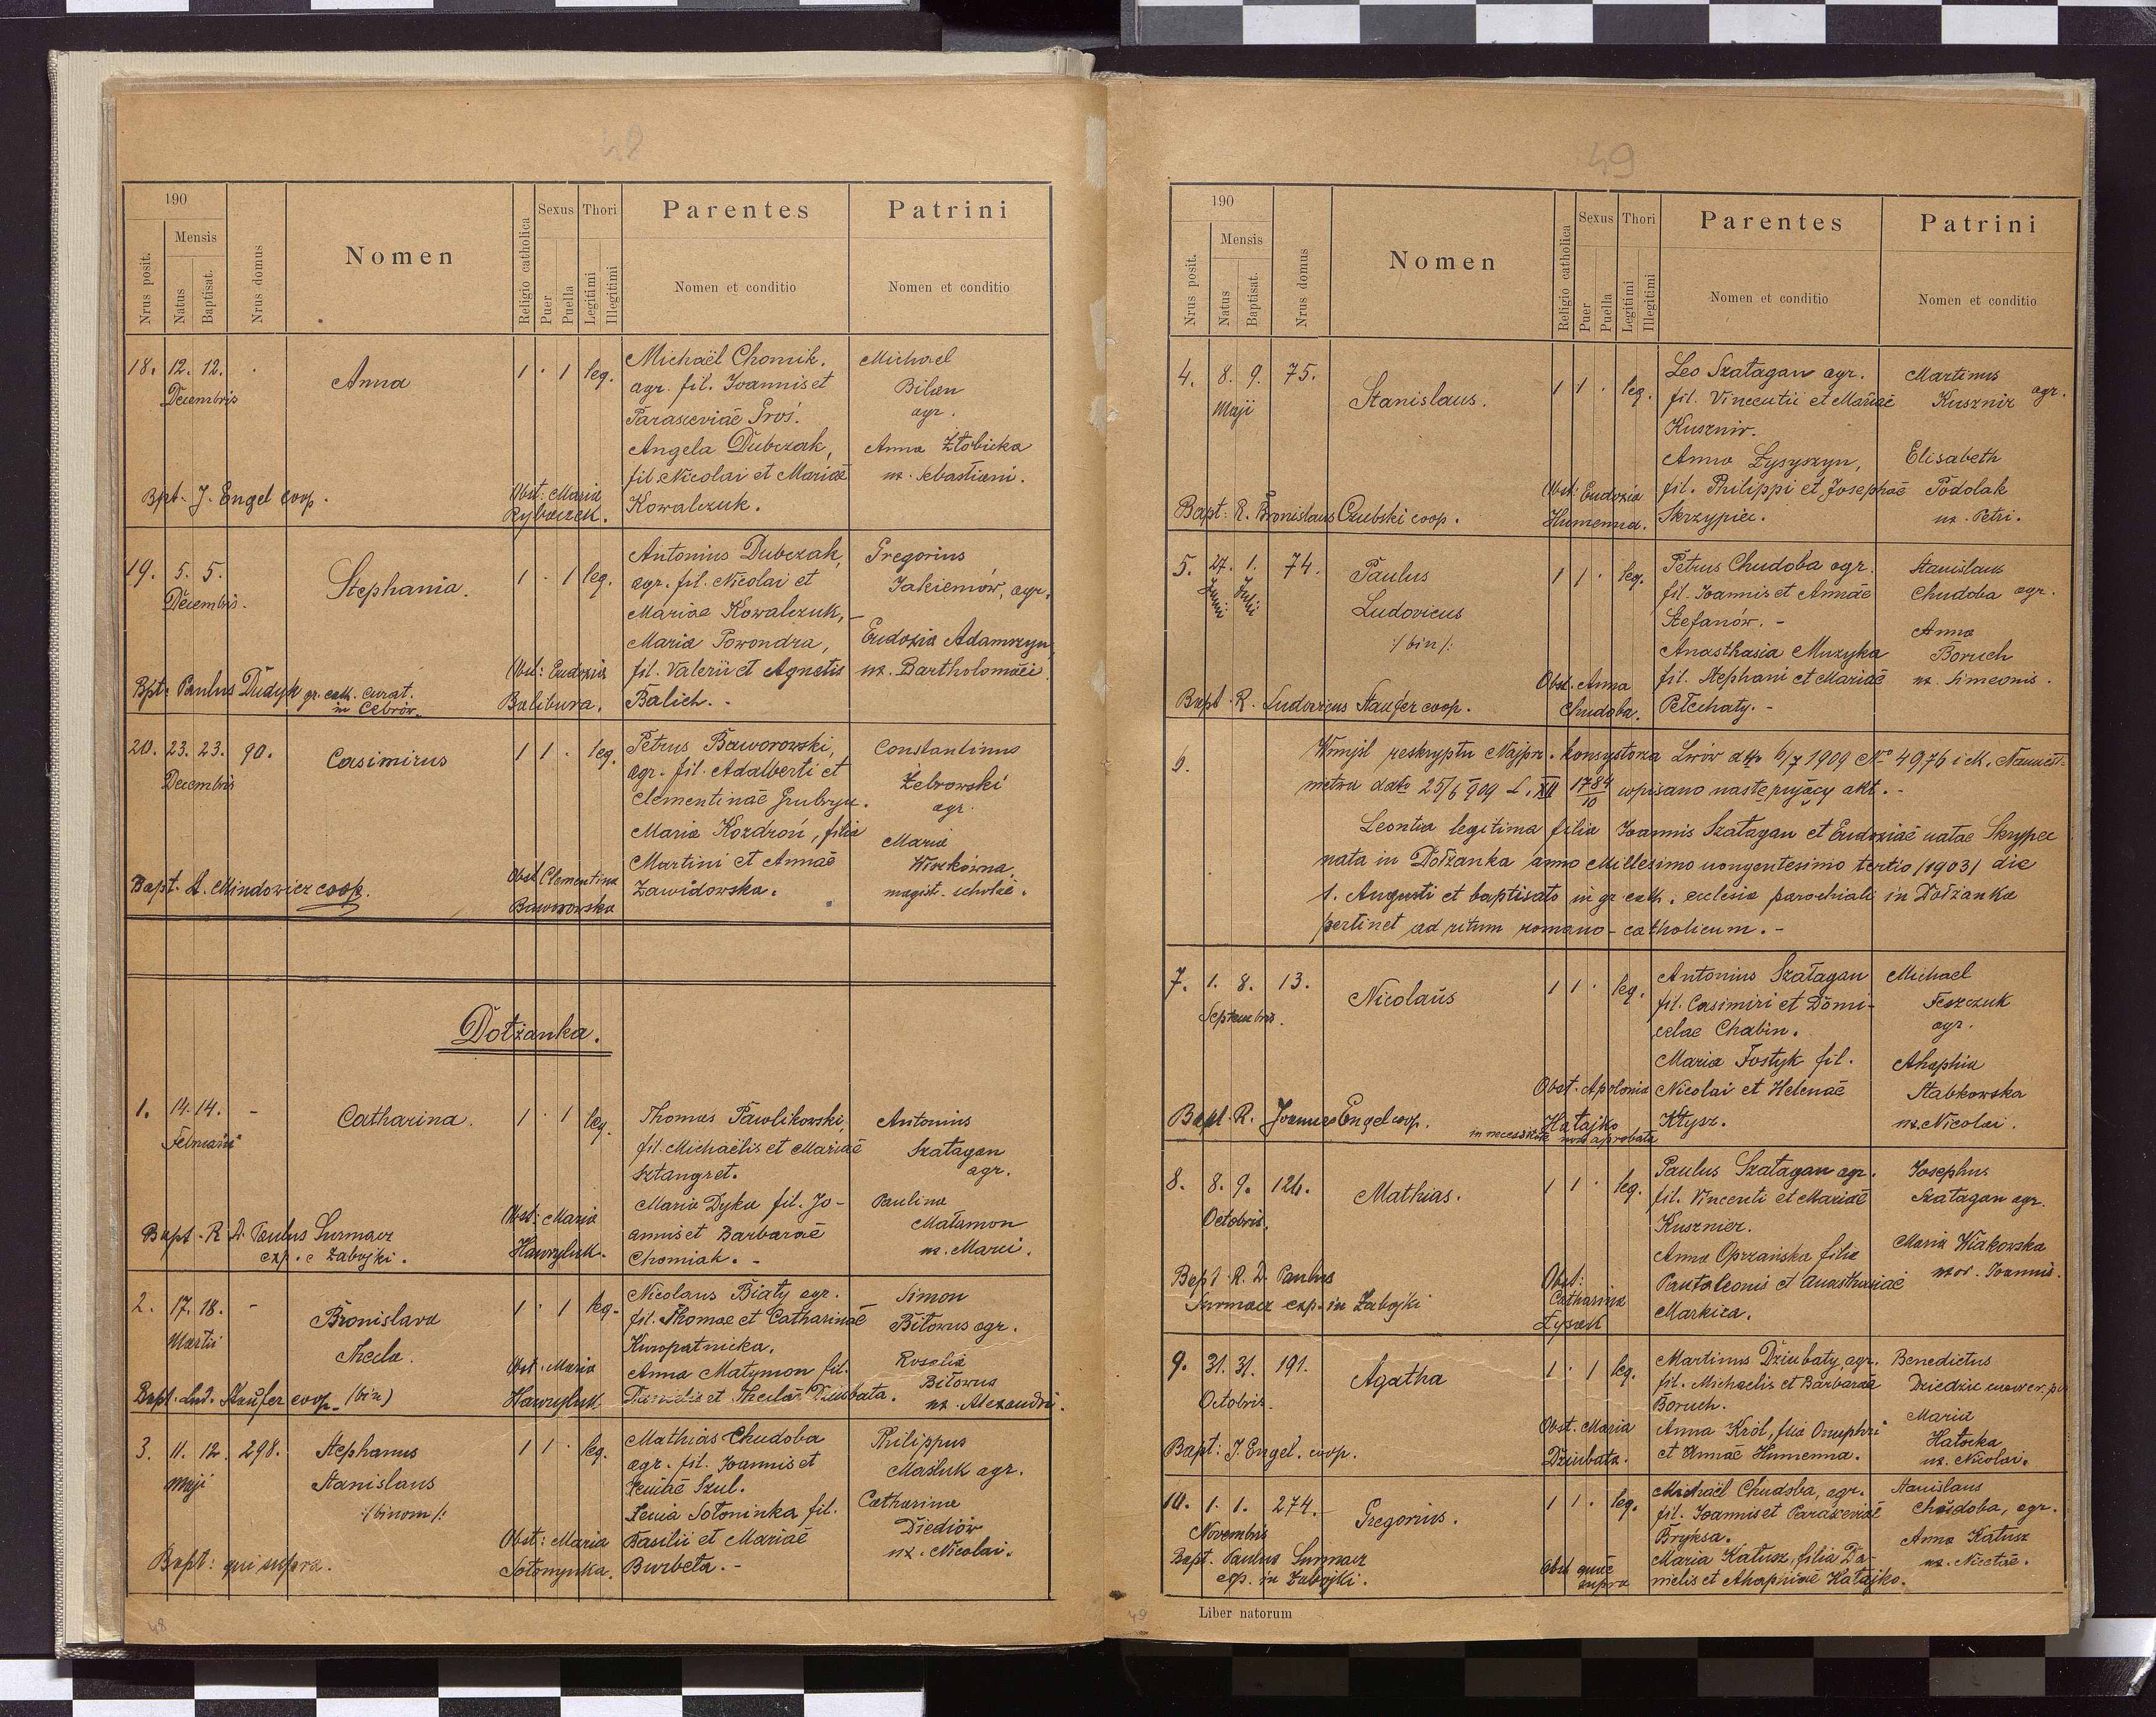 48
190
Nrus posit.
Mensis
Natus
Baptisat.
Nrus domus
Nomen
Religio catholica
Sexus
Puer
Puella
Thori
Legitimi
Illegitimi
Parentes
Nomen et conditio
Patrini
Nomen et conditio
18. 12. 12. Decembris
Anna
1 · 1 leg.
Michaël Chomik.
agr. fil. Joannis et
Parasceviae Groś.
Angela Dubczak,
fil. Nicolai et Mariae
Kowalczuk.
Michael
Bilan
agr.
Anna Złobicka
ux. Sebastiani.
Bpt. J. Engel coop.
Obst: Maria
Rybaczek.
19. 5. 5. Decembris.
Stephania.
1 · 1 leg.
Antonius Dubczak,
agr. fil. Nicolai et
Mariae Kowalczuk,
Maria Powondra,
fil. Valerii et Agnetis
Balich. -
Gregorius
Jakiemów, agr.
Eudoxia Adamczyn
ux. Bartholomaei
Bpt: Paulus Dudyk gr. cath. curat.
in Cebrów.
Obst: Eudoxia
Balibura.
20. 23. 23. 90. Decembris
Casimirus
1 1 · leg.
Petrus Baworowski,
agr. fil. Adalberti et
Clementinae Grubryn.
Maria Kozdroń, filia
Martini et Annae
Zawidowska.
Constantinus
Żebrowski
agr.
Maria
magist. scholae.
Bapt. A. Mindowicz coop.
Obst Clementina
Baworowska
Dołżanka.
1. 14. 14. - Februarii
Catharina.
1 · 1 leg.
Thomas Pawlikowski,
fil. Michaëlis et Mariae
Sztangret.
Maria Dyka fil. Jo-
annis et Barbarae
Chomiak. -
Antonius
Szatagan
agr.
Paulina
Matamon
ux. Marci.
Bapt. R. A. Paulus Surmacz
exp. e Zabojki.
Obst: Maria
Hawryluk.
2. 17. 18. - Martii
Bronislava
Thecla.
1 · 1 leg.
Nicolaus Biały agr.
fil. Thomae et Catharinae
Kuropatnicka.
Anna Matymon fil.
Danielis et Theclae Dziubata.
Simon
Bitowus agr.
Rosalia
Bitowus
ux. Alexandri.
Bapt. Lud. Staufer coop. (bin)
Obst. Maria
Hawryluk
3. 11. 12. 298. Maji
Stephanus
Stanislaus
:/binom/:
1 1 · leg.
Mathias Chudoba
agr. fil. Joannis et
Xeniae Szul.
Xenia Sotoninka fil.
Basilii et Mariae
Burbeta. -
Philippus
Masluk agr.
Catharina
Diediów
ux. Nicolai.
Bapt: qui supra.
Obst: Maria
Sotonynka.
48
49
190
Nrus posit.
Mensis
Natus
Baptisat.
Nrus domus
Nomen
Religio catholica
Sexus
Puer
Puella
Thori
Legitimi
Illegitimi
Parentes
Nomen et conditio
Patrini
Nomen et conditio
4. 8. 9. 75. Maji
Stanislaus.
1 1 · leg.
Leo Szatagan agr.
fil. Vincentii et Mariae
Kusznir.
Anna Łysyszyn,
fil. Philippi et Josephae
Skrzypiec.
Martinus
Kusznir agr.
Elisabeth
Podolak
ux. Petri.
Bapt: R. Bronislaus Czubski coop.
Obst: Eudoxia
Humenna.
5. 27. 1. 74. Junii Julii
Paulus
Ludovicus
:/bin/:
1 1 · leg.
Petrus Chudoba agr.
fil. Joannis et Annae
Stefanów. -
Anasthasia Muzyka
fil. Stephani et Mariae
Petchaty. -
Stanislaus
Chudoba agr.
Anna
Boruch
ux. Simeonis.
Bapt. R. Ludovicus Staufer coop.
Obst. Anna
Chudoba.
6.
Wmyśl reskryptu Najprz. konsystorza Lwów dto 6/7 1909 No 4976 i ck. Namiest-
nictwa dato 25/6 909 L. XII 1784/10 wpisano następujący akt. -
Leontia legitima filia Joannis Szatagan et Eudoxiae natae Skrypec
nata in Dołżanka anno Millesimo nongentesimo tertio /1903/ die
1. Augusti et baptisata in gr. cath. ecclesia parochiali in Dołżanka
pertinet ad ritum romano-catholicum. -
7. 1. 8. 13. Septembris.
Nicolaus
1 1 · leg.
Antonius Szatagan
fil. Casimiri et Domi-
celae Chabin.
Maria Fostyk fil.
Nicolai et Helenae
Kłysz.
Michael
Feszczuk
agr.
Ahaphia
Stabkowska
ux. Nicolai.
Bapt. R. Joannes Engel coop.
Obst. Apolonia
Hatajko
in necessitate non aprobata
8. 8. 9. 124. Octobris.
Mathias.
1 1 · leg.
Paulus Szatagan agr.
fil. Vincenti et Mariae
Kusznier.
Anna Oprzańska filia
Pantaleonis et Anasthasiae
Markica.
Josephus
Szatagan agr.
Maria Wiakowska
uxor. Joannis.
Bapt. R. D. Paulus
Surmacz exp. in Zabojki
Obst:
Catharina
Łysak
9. 31. 31. 191. Octobris.
Agatha
1 · 1 leg.
Martinus Dziubaty, agr.
fil. Michaelis et Barbarae
Boruch.
Anna Król, filia Onuphri
et Annae Humenna.
Benedictus
Dziedzic
Maria
Hatocka
ux. Nicolai.
Bapt: J. Engel. coop.
Obst. Maria
Dziubata.
10. 1. 1. 274. Novembris
Gregorius.
1 1 · leg.
Michaël Chudoba, agr.
fil. Joannis et Parasceviae
Bryksa.
Maria Katusz, filia Da-
nielis et Ahaphiae Hatajko.
Stanislaus
Chudoba, agr.
Anna Katusz
Bapt. Paulus Surmacz
exp. in Zabojki.
Obst quae
supra
Liber natorum
49